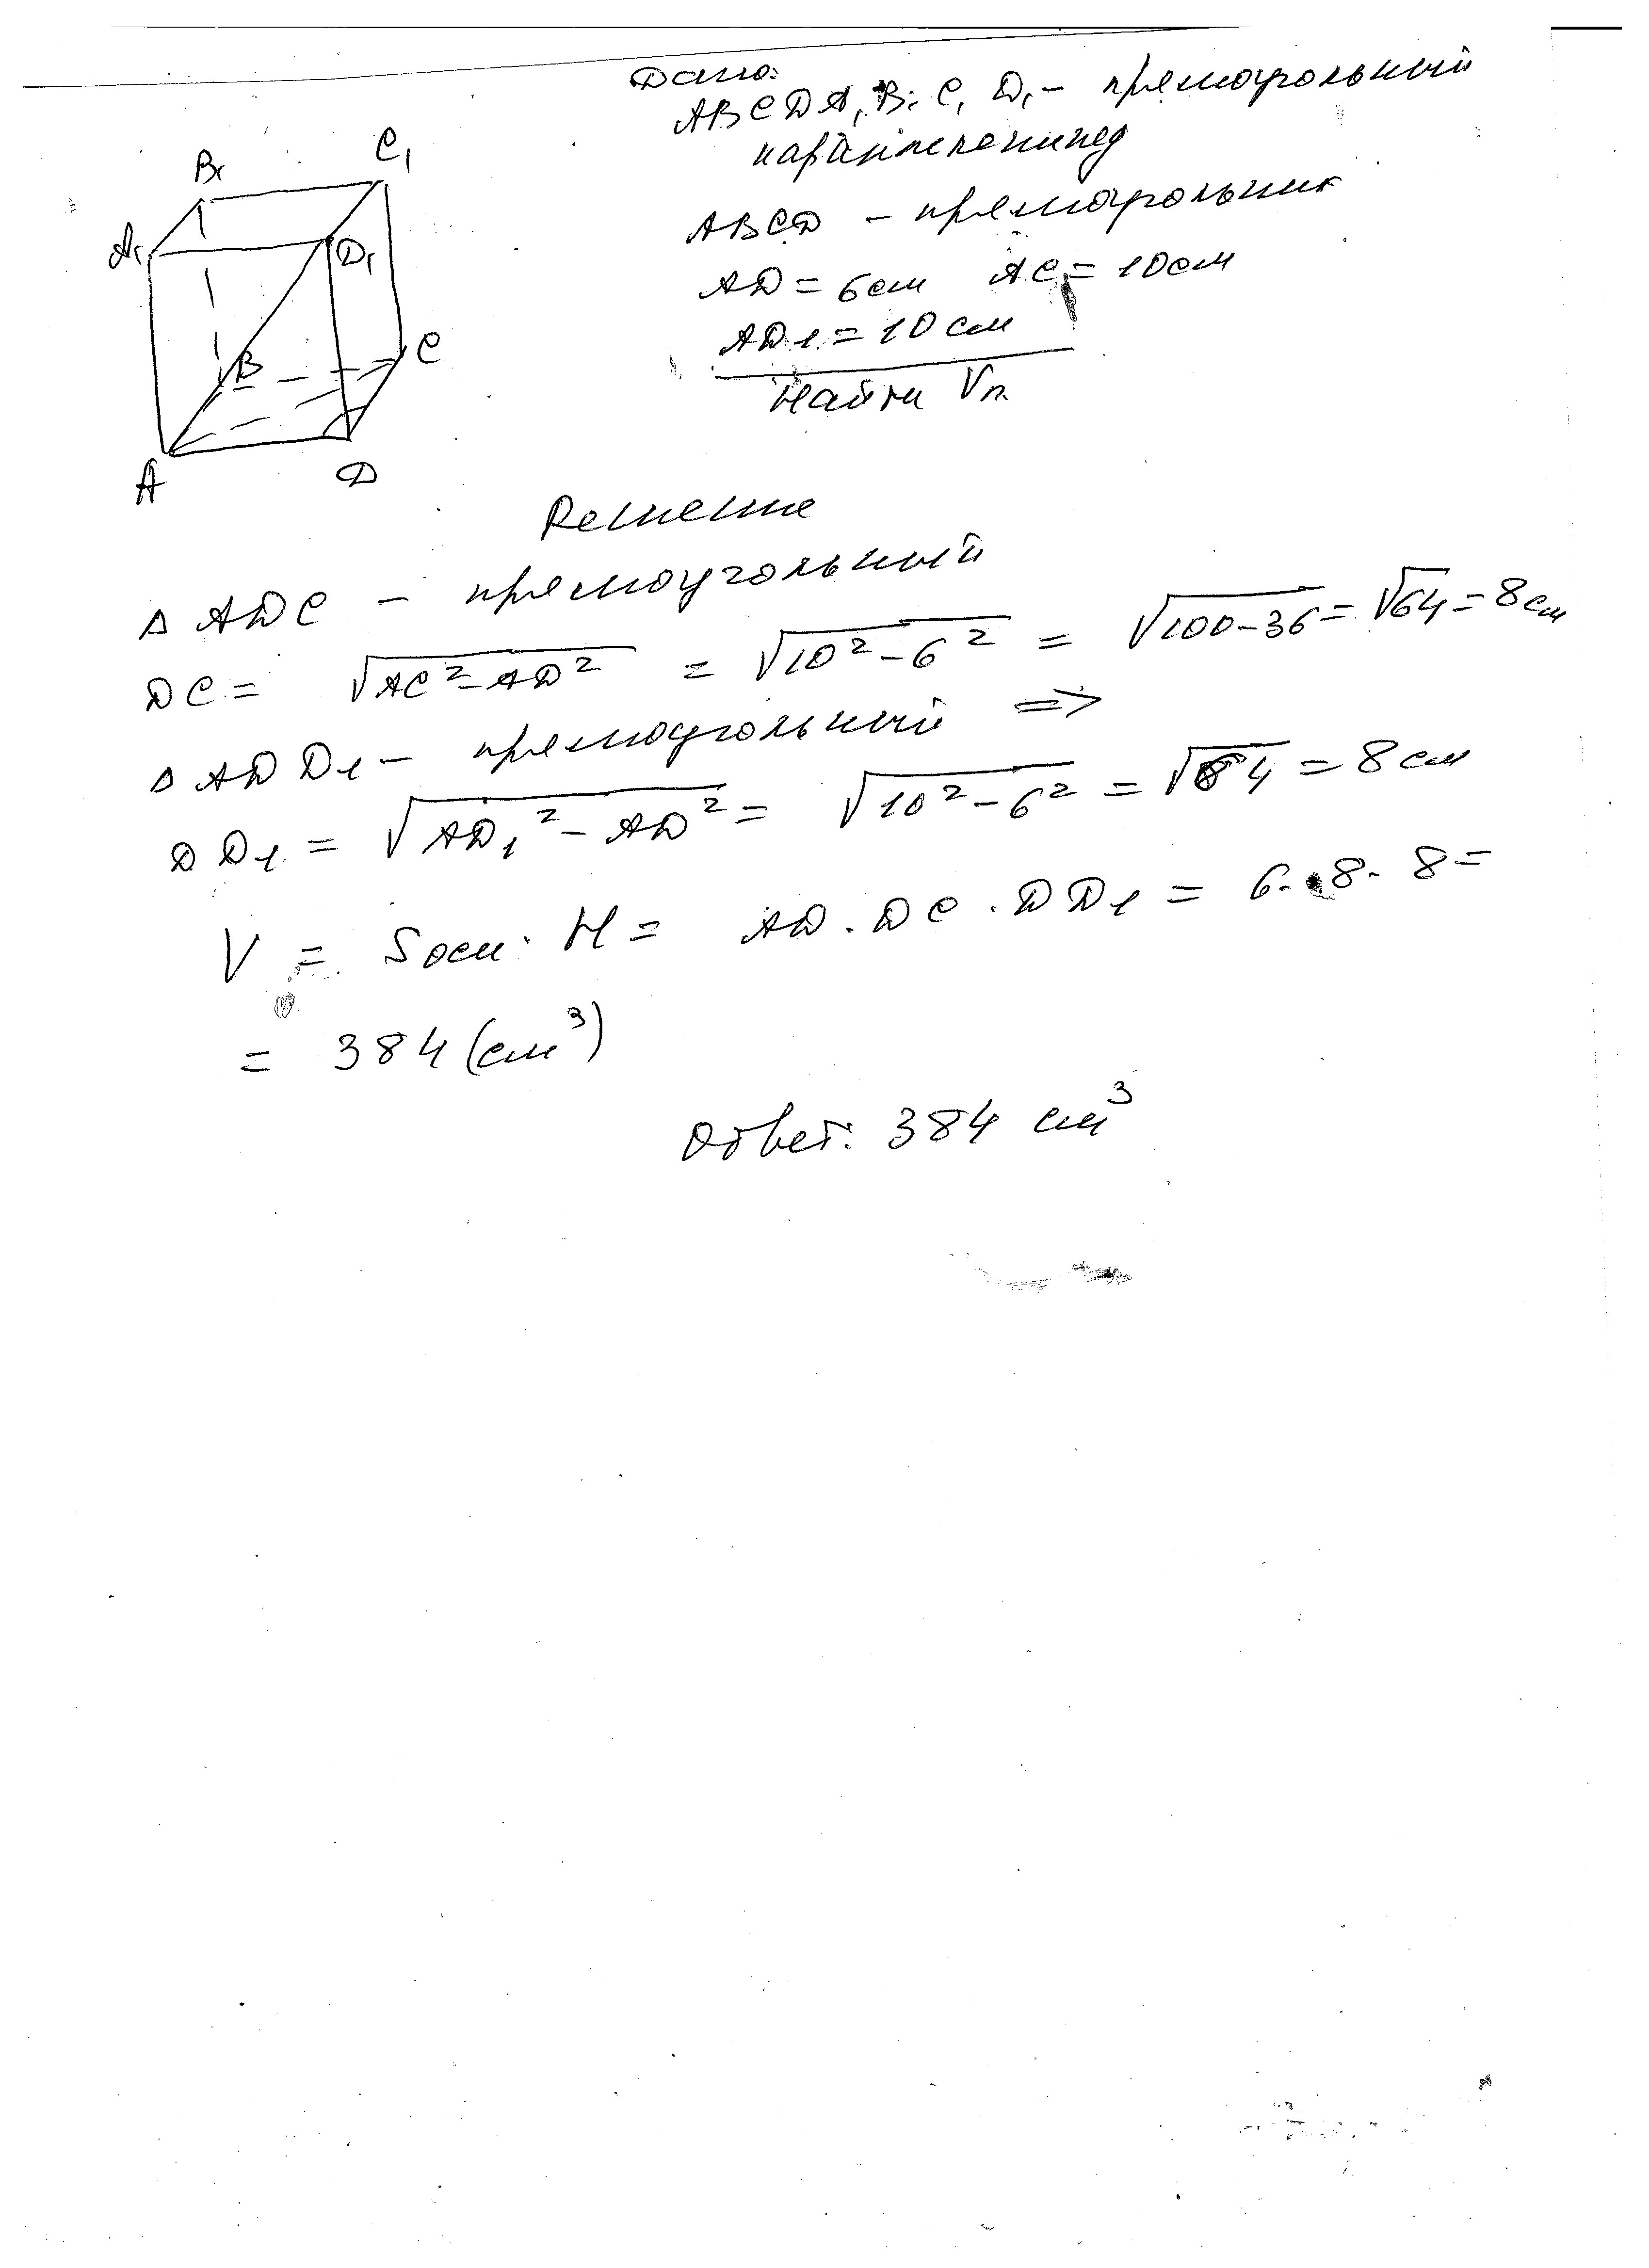 Дано:
ABCDA₁B₁C₁D₁ – прямоугольный
параллелепипед
ABCD – прямоугольник
AD = 6см AC = 10см
AD₁ = 10 см
Найти Vп.
B₁
C₁
A₁
D₁
B
C
A
D
Решение
△ ADC – прямоугольный
DC = √(AC² – AD²) = √(10² – 6²) = √(100 – 36) = √64 = 8см
△ ADD₁ – прямоугольный ⇒
DD₁ = √(AD₁² – AD²) = √(10² – 6²) = √64 = 8см
V = Sосн · H = AD · DC · DD₁ = 6 · 8 · 8 =
= 384 (см³)
Ответ: 384 см³